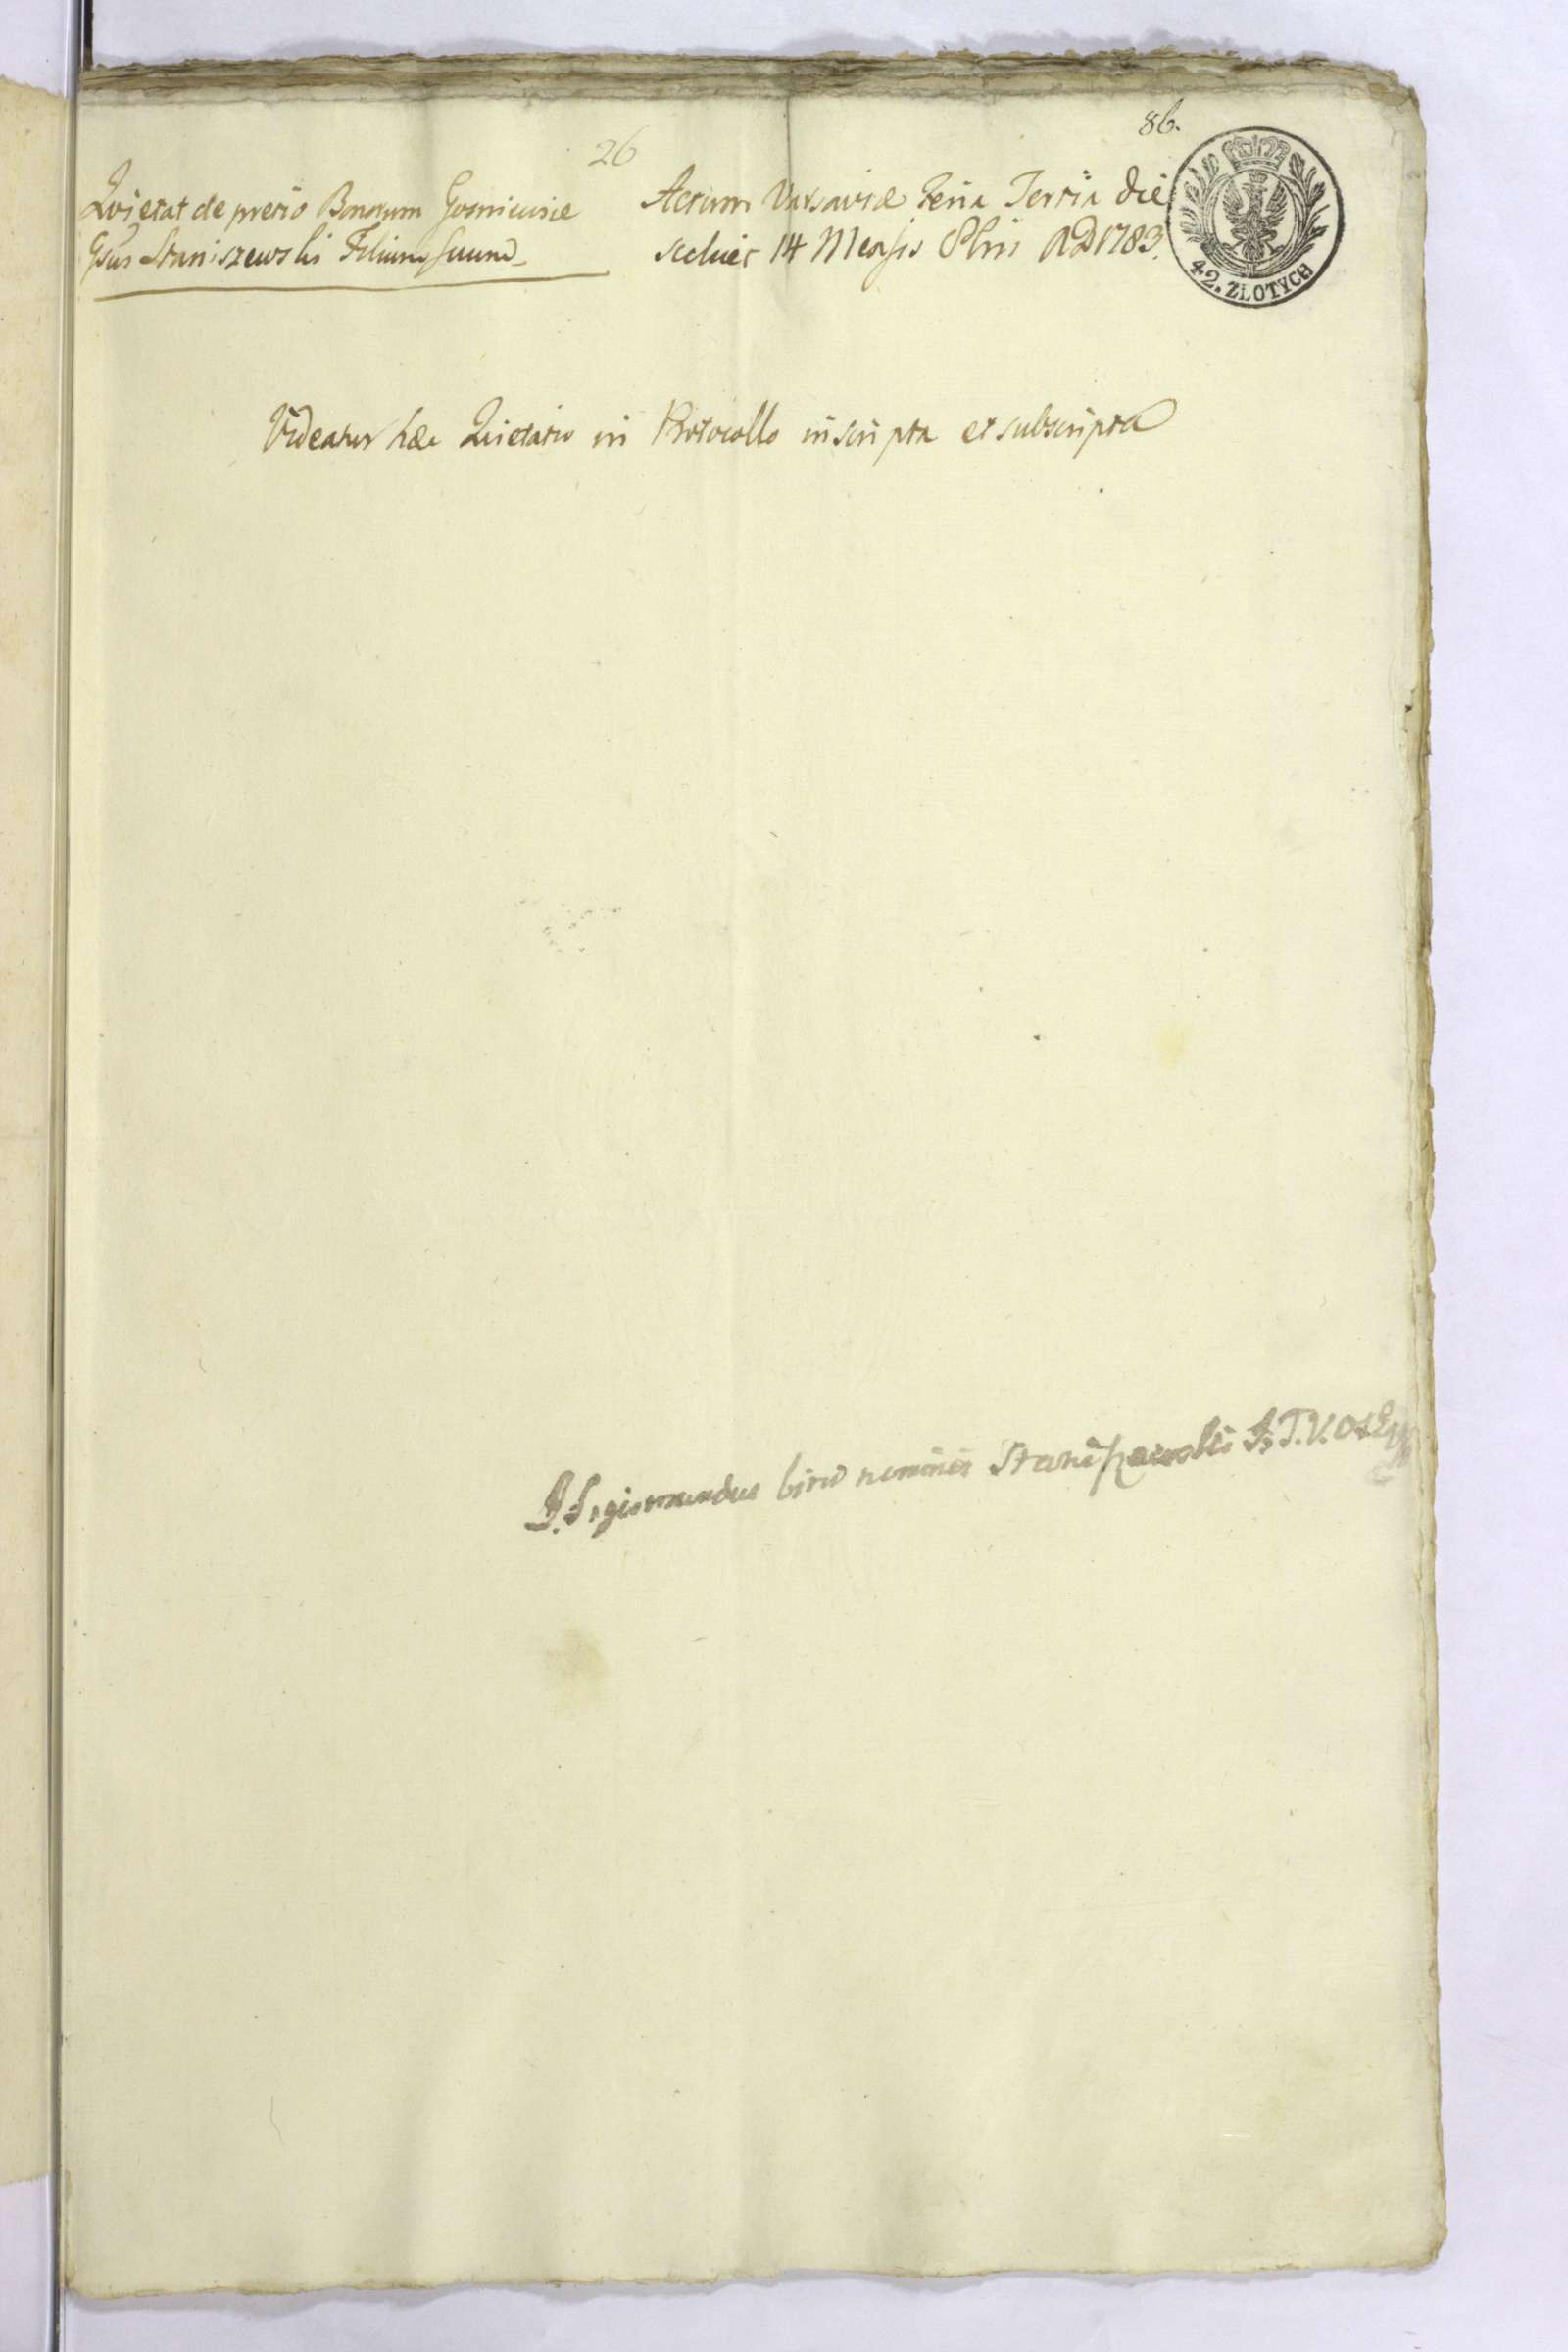 86.
26
Quietat de pretio Bonorum Gosniewice
Gsus Staniszewski Filium suum
Actum Varsaviæ Feria Tertia die
scilicet 14 Mensis 8bris AD 1783.
42. ZŁOTYCH
Videatur hæc Quietatio in Protocollo inscripta et subscripta
Sigismundus binō nominis Staniszewski T. V.